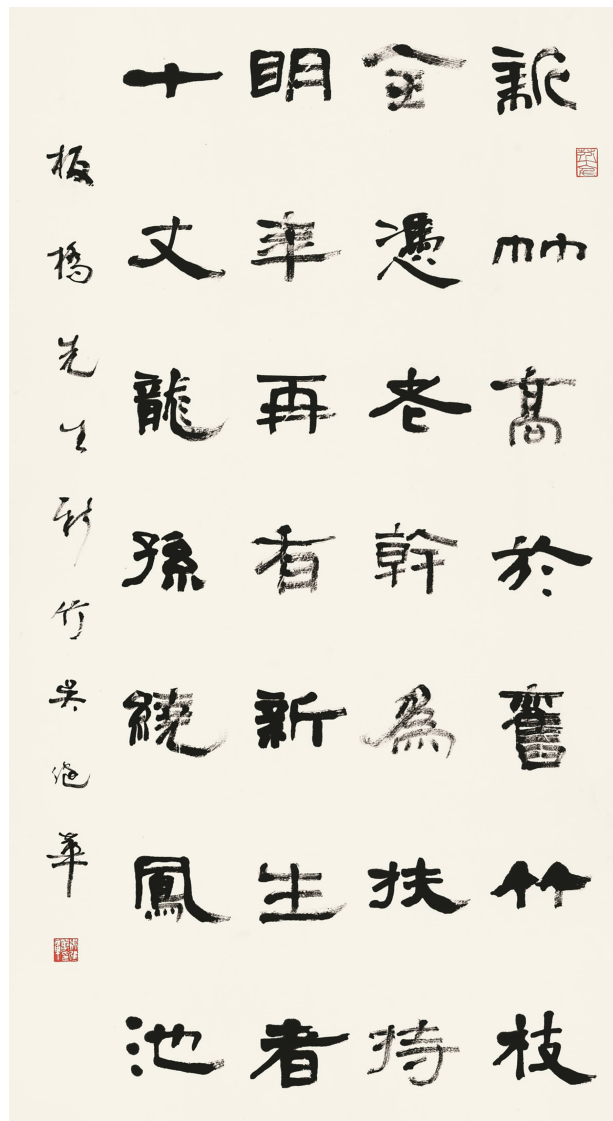 新竹高於舊竹枝
全憑老幹為扶持
明年再有新生者
十丈龍孫繞鳳池
板橋先生新竹吳華